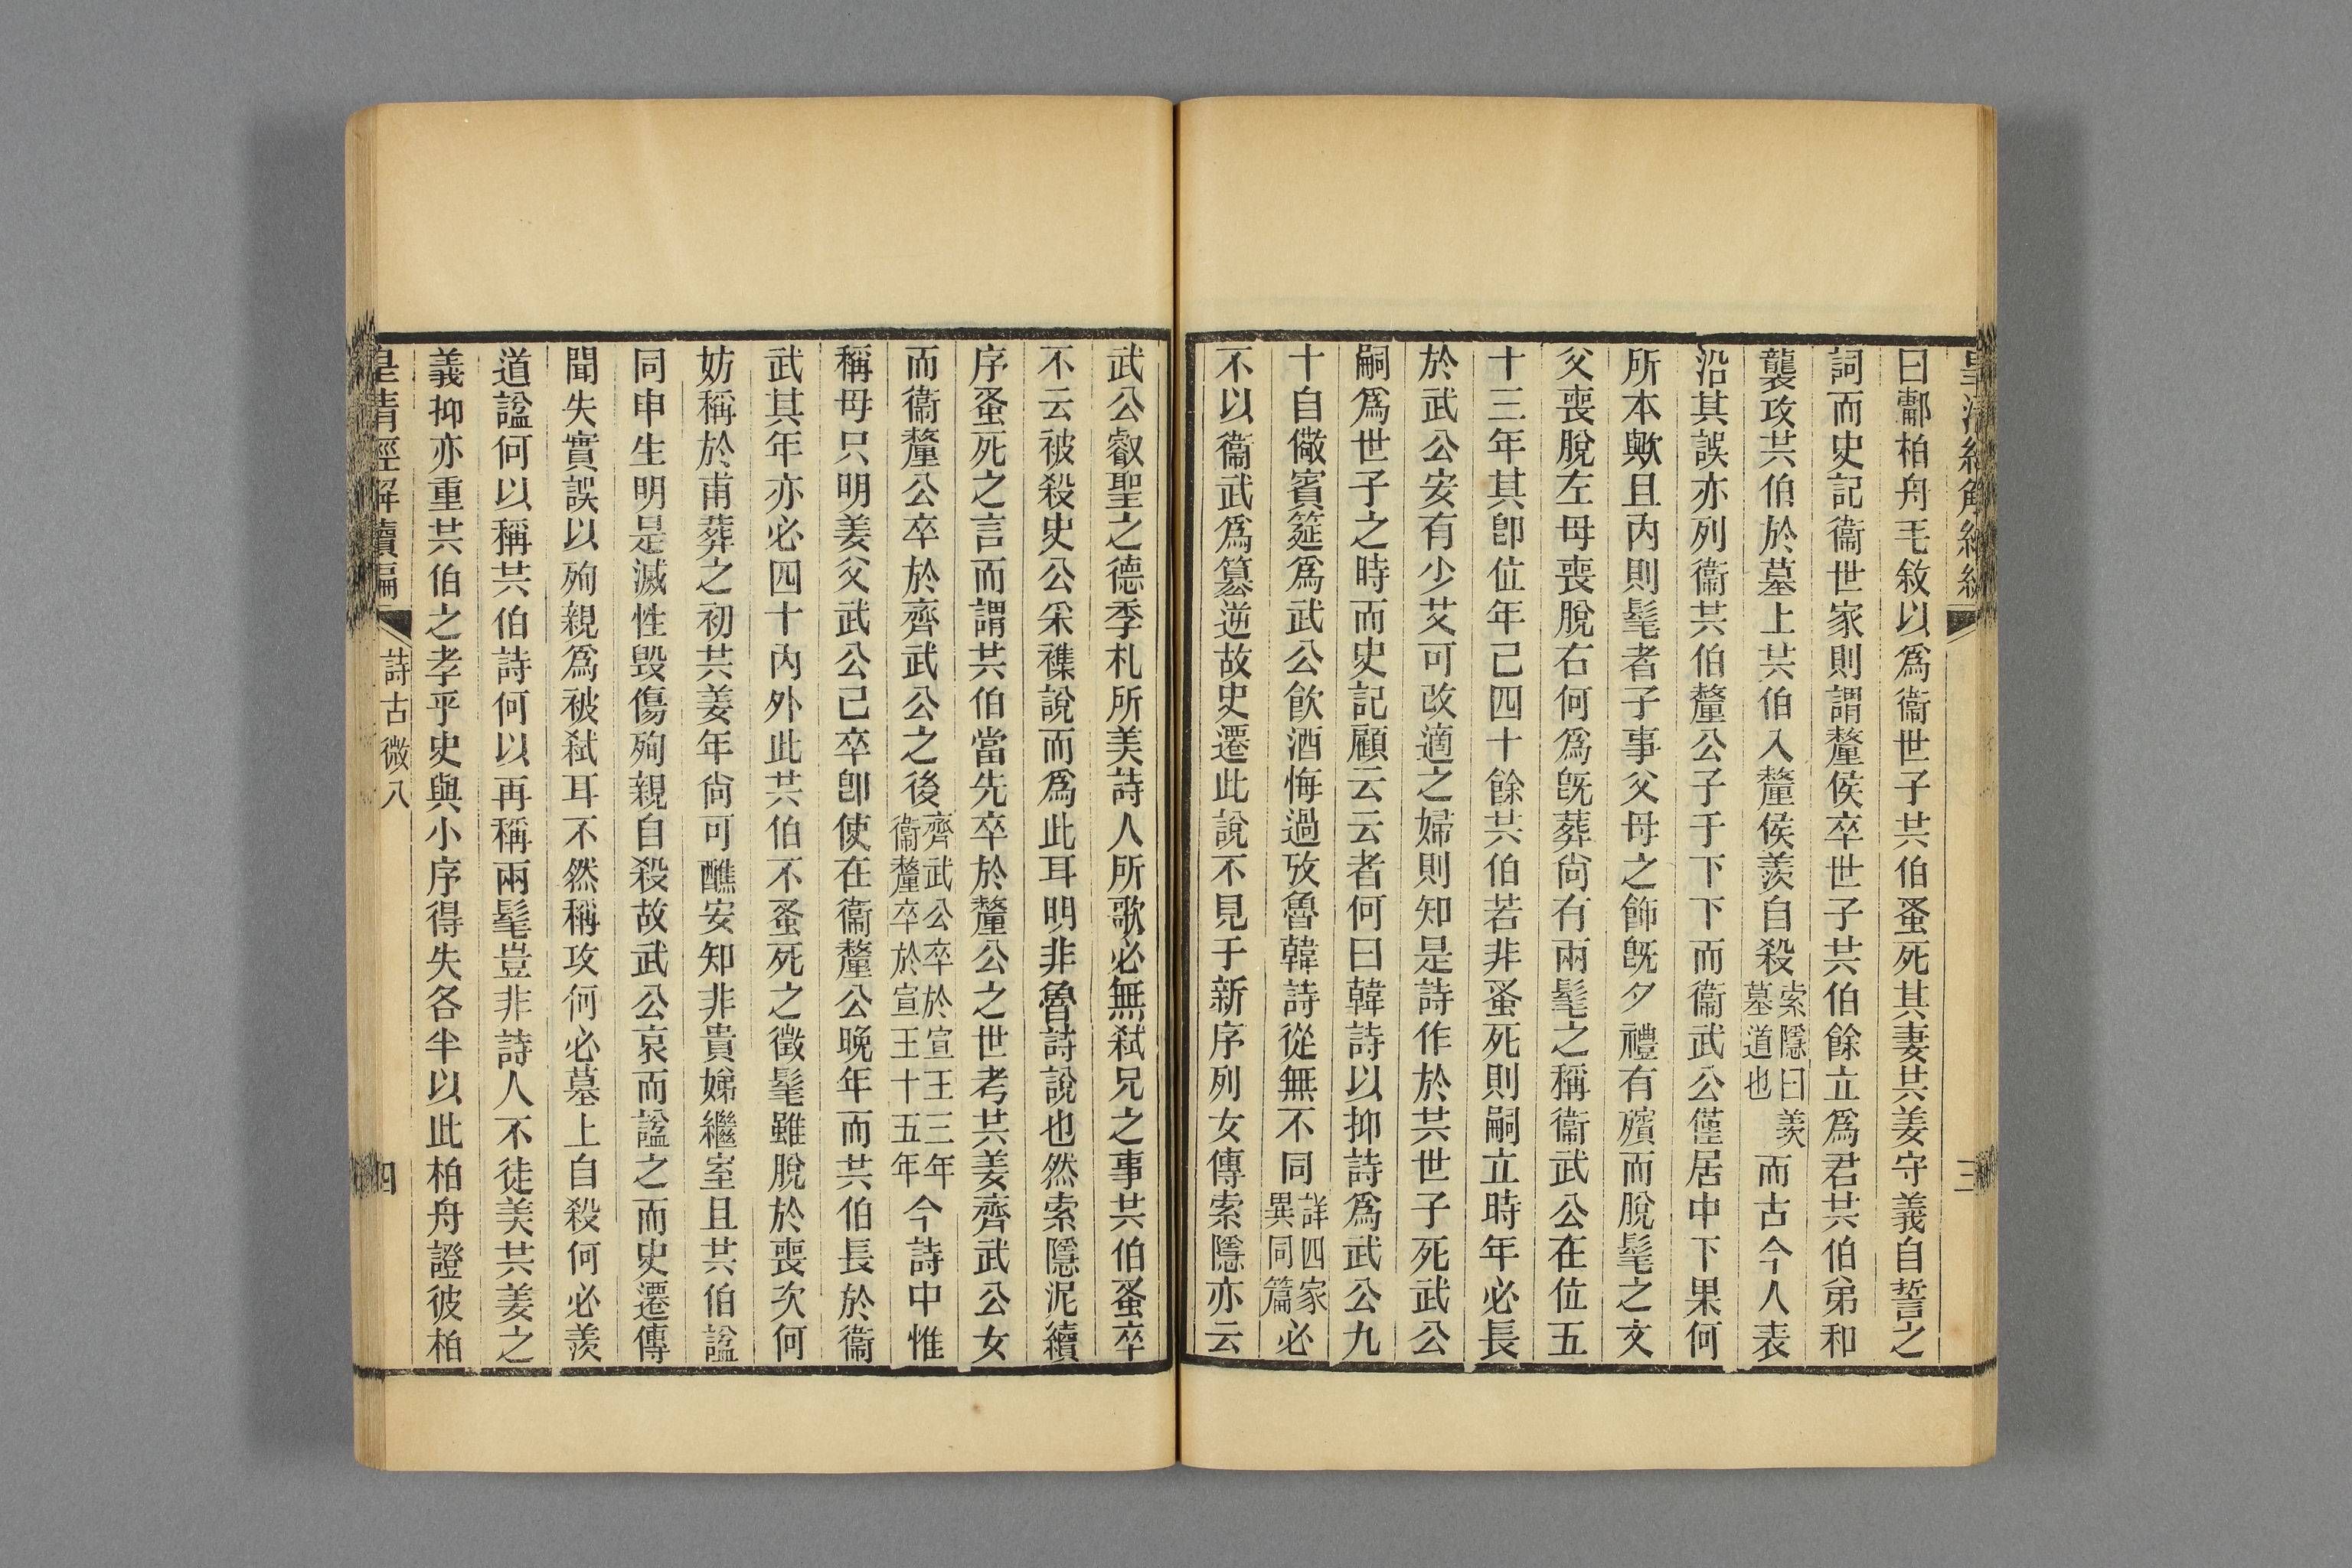 曰鄘柏舟毛敘以爲衞世子共伯蚤死其妻共姜守義自誓之
詞而史記衞世家則謂釐侯卒世子共伯餘立爲君共伯弟和
襲攻共伯於墓上共伯入釐侯羨自殺索隱曰羨墓道也而古今人表
沿其誤亦列衞共伯釐公子于下下而衞武公僅居中下果何
所本歟且內則髦者子事父母之飾旣夕禮有殯而脫髦之文
父喪脫左母喪脫右何爲旣葬尙有兩髦之稱衞武公在位五
十三年其卽位年已四十餘共伯若非蚤死則嗣立時年必長
於武公安有少艾可改適之婦則知是詩作於共世子死武公
嗣爲世子之時而史記顧云云者何曰韓詩以抑詩爲武公九
十自儆賓筵爲武公飮酒悔過攷魯韓詩從無不同詳四家異同篇必
不以衞武爲篡逆故史遷此說不見于新序列女傳索隱亦云
武公叡聖之德季札所美詩人所歌必無弒兄之事共伯蚤卒
不云被殺史公采襍說而爲此耳明非魯詩說也然索隱泥續
序蚤死之言而謂共伯當先卒於釐公之世考共姜齊武公女
而衞釐公卒於齊武公之後齊武公卒於宣王三年衞釐卒於宣王十五年今詩中惟
稱母只明姜父武公已卒卽使在衞釐公晚年而共伯長於衞
武其年亦必四十內外此共伯不蚤死之徵髦雖脫於喪次何
妨稱於甫葬之初共姜年尙可醮安知非貴娣繼室且共伯諡
同申生明是滅性毀傷殉親自殺故武公哀而諡之而史遷傳
聞失實誤以殉親爲被弒耳不然稱攻何必墓上自殺何必羨
道諡何以稱共伯詩何以再稱兩髦豈非詩人不徒美共姜之
義抑亦重共伯之孝乎史與小序得失各半以此柏舟證彼柏
皇淸經解續編
詩古微八
四